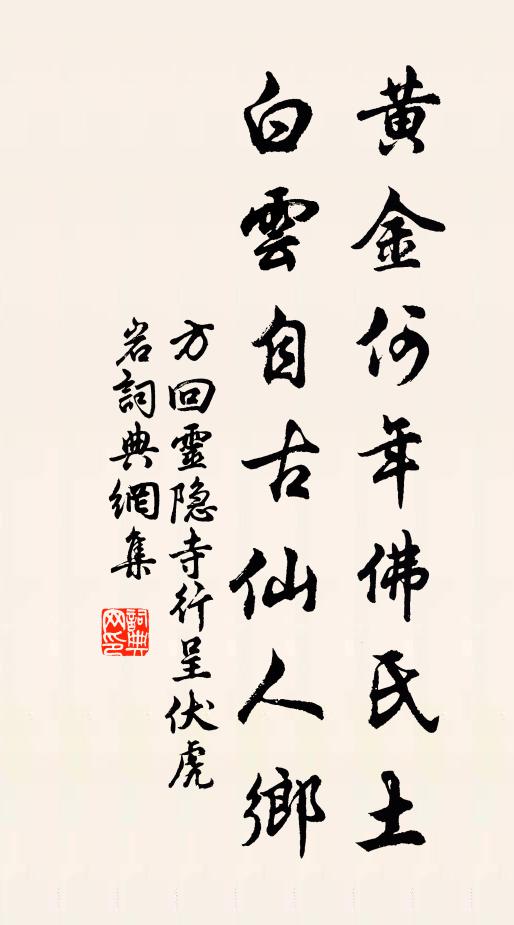 黃金何年佛氏土
白雲自古仙人鄉
方回靈隐寺行呈伏虎
岩詞典網集
詞典網印